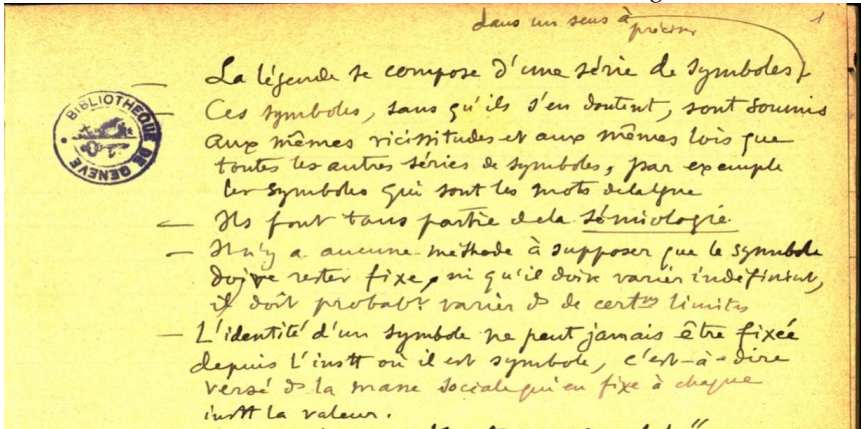 dans un sens à
préciser
1
— La légende se compose d'une série de symboles,
— Ces symboles, sans qu'ils s'en doutent, sont soumis
aux mêmes vicissitudes et aux mêmes lois que
toutes les autres séries de symboles, par exemple
les symboles qui sont les mots de la lgue
— Ils font tous partie de la sémiologie.
— Il n'y a aucune méthode à supposer que le symbole
doive rester fixe, ni qu'il doive varier indéfinimt,
il doit probabt varier ds de certnes limites
— L'identité d'un symbole ne peut jamais être fixée
depuis l'instt où il est symbole, c'est-à-dire
versé ds la masse sociale qui en fixe à chaque
instt la valeur.
BIBLIOTHEQUE DE GENEVE